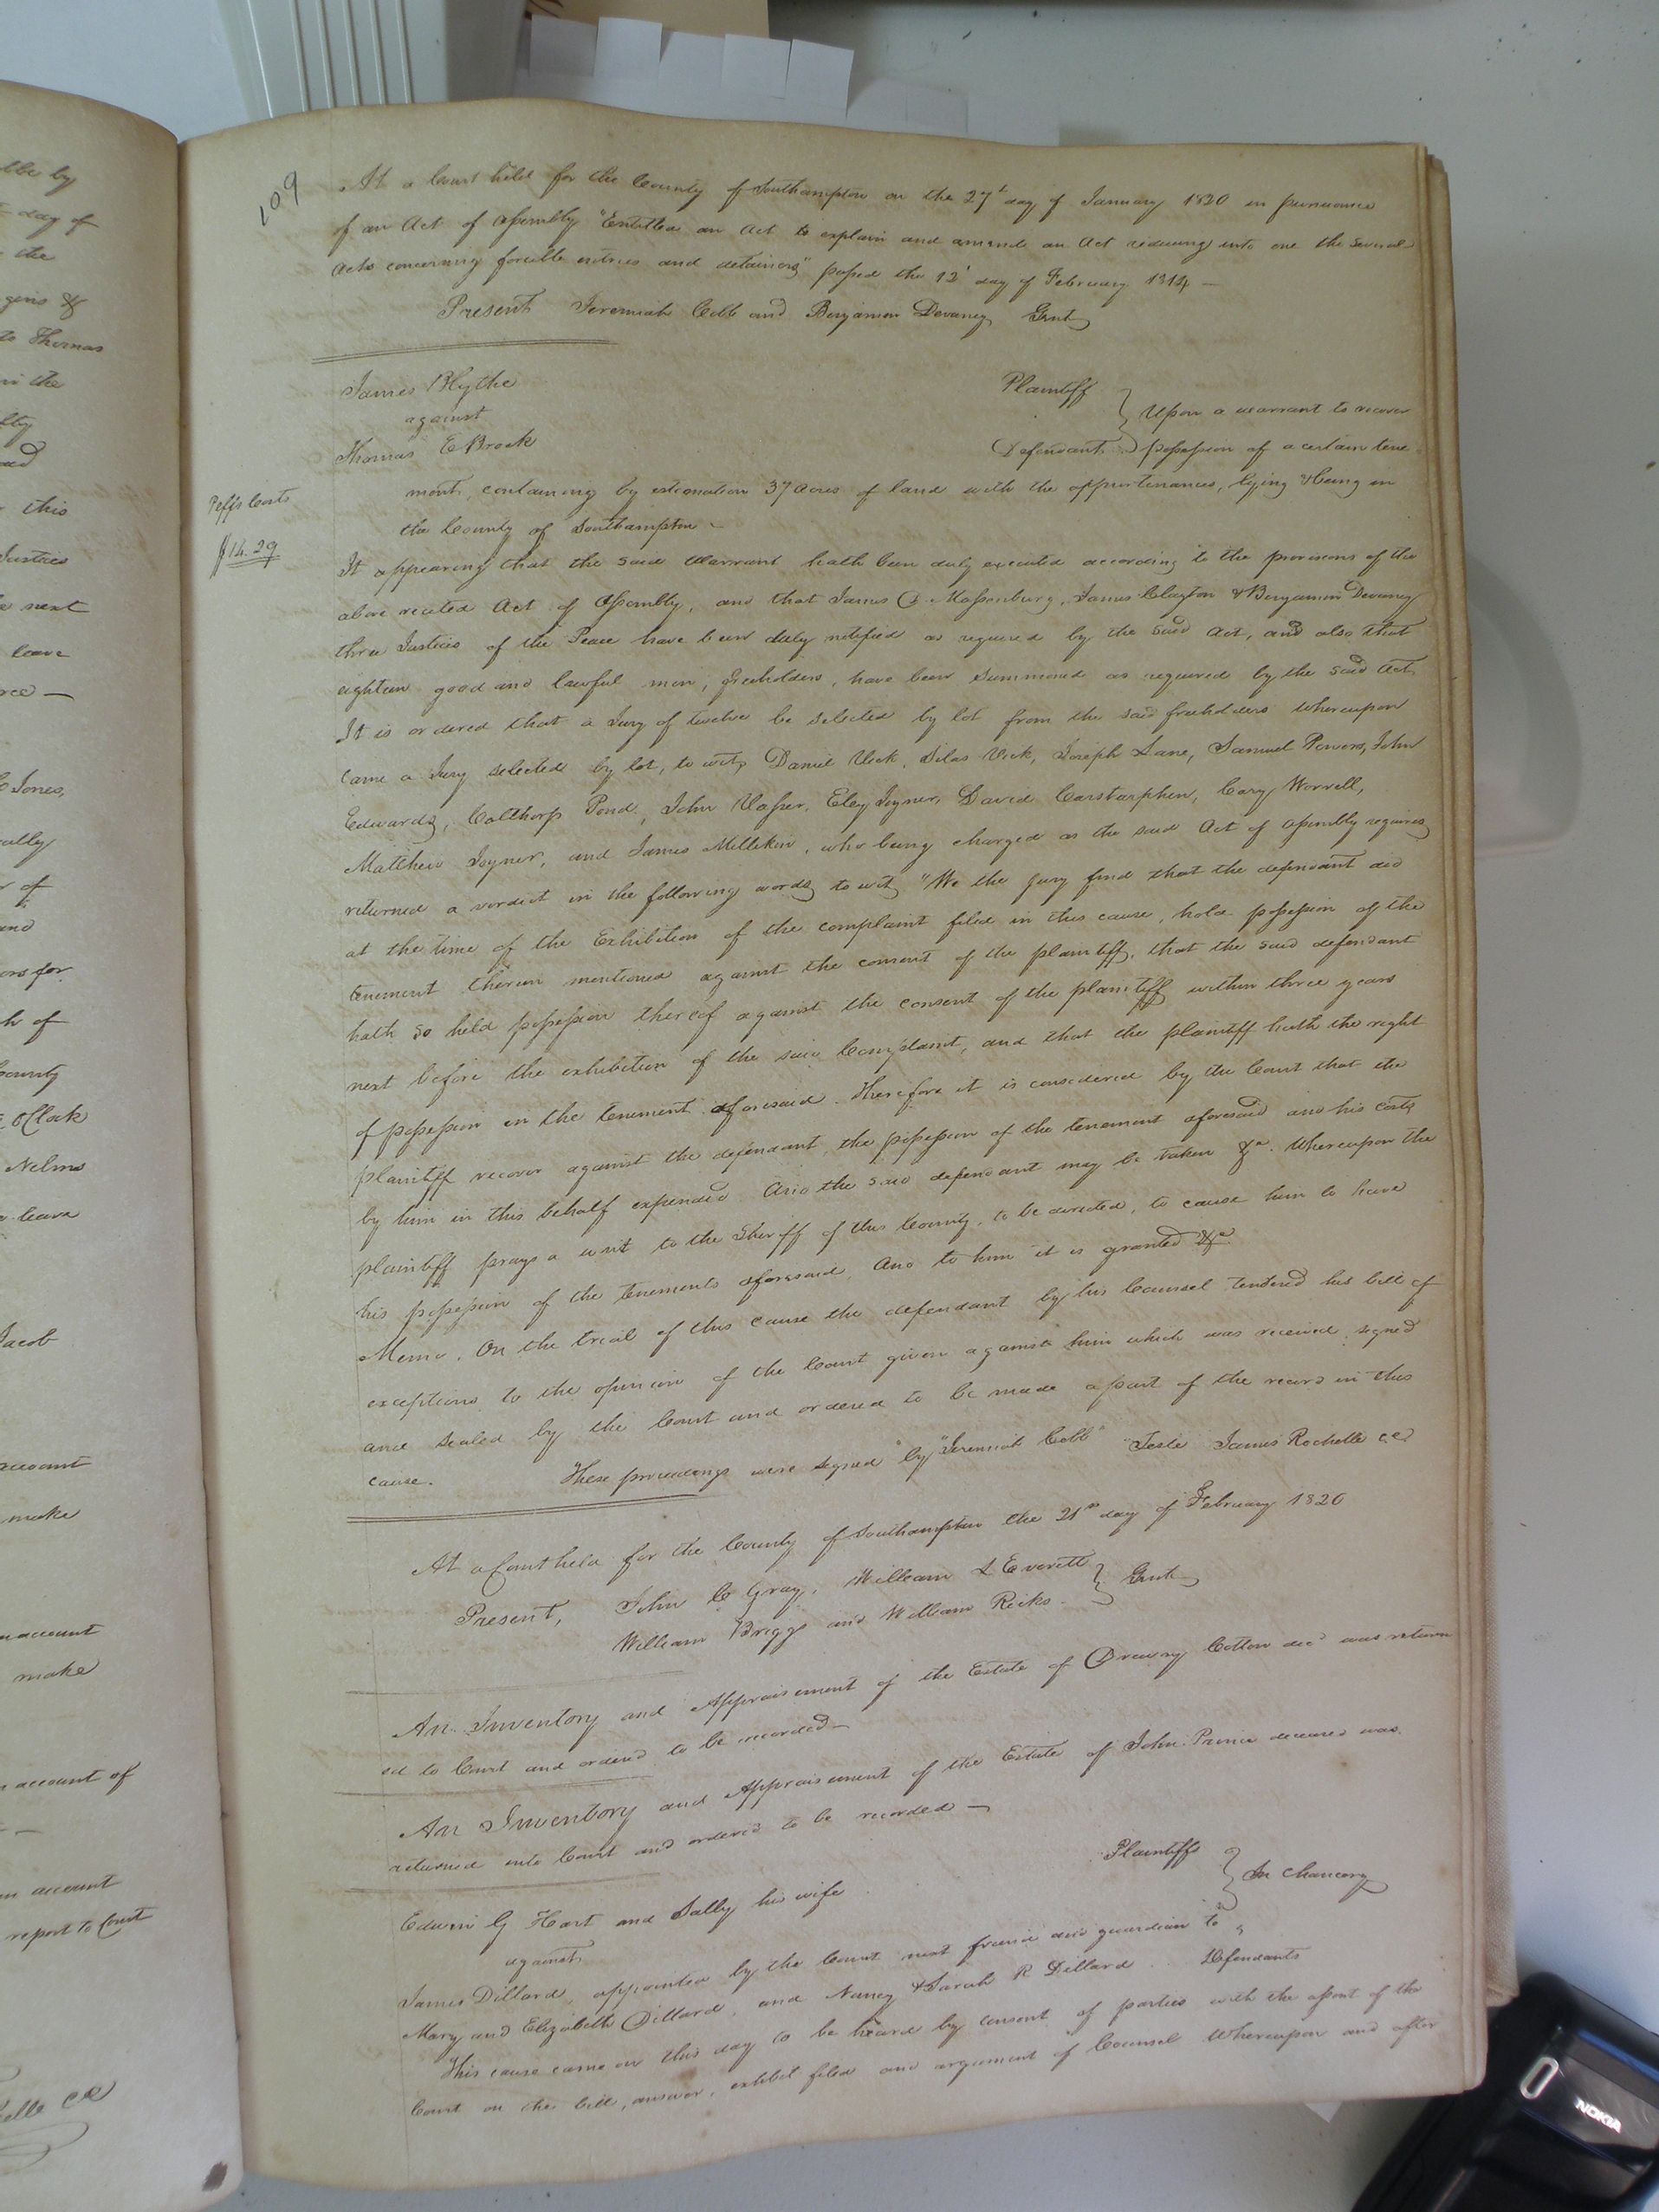 lbe by
day of
the
gins &
to Thomas
in the
lty
this
Justices
next
leave
C Jones,
ally
r of
and
ors for
h of
County
OClock
Nelms
leave
Jacob
account
make
account
make
account of
account
report to Court
elle CC
109
At a Court held for the County of Southampton on the 27th day of January 1820 in pursuance
of an Act of Assembly "Entitled an Act to explain and amend an Act reducing into one the several
Acts concerning forcible entries and detainers" passed the 12' day of February 1814 —
Present Jeremiah Cobb and Benjamin Devaney Gent
James Blythe Plaintiff
against } Upon a warrant to recover
Thomas E Brock Defendant possession of a certain tene
ment, containing by estimation 37 acres of land with the appurtenances, lying & being in
the County of Southampton —
Peffs Costs
$14.29
It appearing that the said Warrant hath been duly executed according to the provisions of the
above recited Act of Assembly, and that James Massenburg, James Clayton & Benjamin Devaney
three Justices of the Peace have been duly notified as required by the said Act, and also that
eighteen good and lawful men, freeholders, have been summoned as required by the said Act,
It is ordered that a Jury of twelve be selected by lot from the said freeholders Whereupon
came a Jury selected by lot, to wit, Daniel Vick, Silas Vick, Joseph Lane, Samuel Powers, John
Edwards, Colthorp Pond, John Vasser, Eley Joyner, David Carstarphen, Cary Worrell,
Matthew Joyner, and James Millikin, who being charged as the said Act of Assembly requires
returned a verdict in the following words to wit, "We the jury find that the defendant did
at the time of the Exhibition of the complaint filed in this cause, hold possession of the
tenement therein mentioned against the consent of the plaintiff, that the said defendant
hath so held possession thereof against the consent of the plaintiff within three years
next before the exhibition of the said Complaint, and that the plaintiff hath the right
of possession in the tenement aforesaid. Therefore it is considered by the Court that the
plaintiff recover against the defendant, the possession of the tenement aforesaid and his costs
by him in this behalf expended And the said defendant may be taken &c. Whereupon the
plaintiff prays a writ to the Sheriff of this County, to be directed, to cause him to have
his possession of the tenements aforesaid, And to him it is granted &c
Memo. On the trial of this cause the defendant by his Counsel tendered his bill of
exceptions to the opinion of the Court given against him which was received signed
and sealed by the Court and ordered to be made a part of the record in this
cause. These proceedings were signed by "Jeremiah Cobb" Teste James Rochelle CC
At a Court held for the County of Southampton the 21st day of February 1820
Present, John C Gray, William L Everett
William Briggs and William Ricks } Gent
An Inventory and Appraisement of the Estate of Drewry Cotton decd was return
ed to Court and ordered to be recorded —
An Inventory and Appraisement of the Estate of John Prince deceased was
returned into Court and ordered to be recorded —
Edwin G Hart and Sally his wife Plaintiffs
against } In Chancery
James Dillard, appointed by the Court next friend and guardian to
Mary and Elizabeth Dillard, and Nancy & Sarah R Dillard Defendants
This cause came on this day to be heard by consent of parties with the assent of the
Court on the bill, answer, exhibit filed and argument of Counsel Whereupon and after
NOKIA